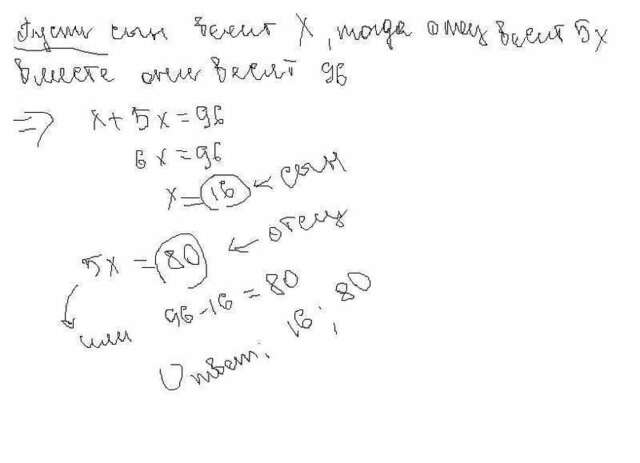 Пусть сын весит x, тогда отец весит 5x
вместе они весят 96
⇒ x + 5x = 96
6x = 96
x = 16 ← сын
5x = 80 ← отец
или 96 - 16 = 80
Ответ: 16; 80